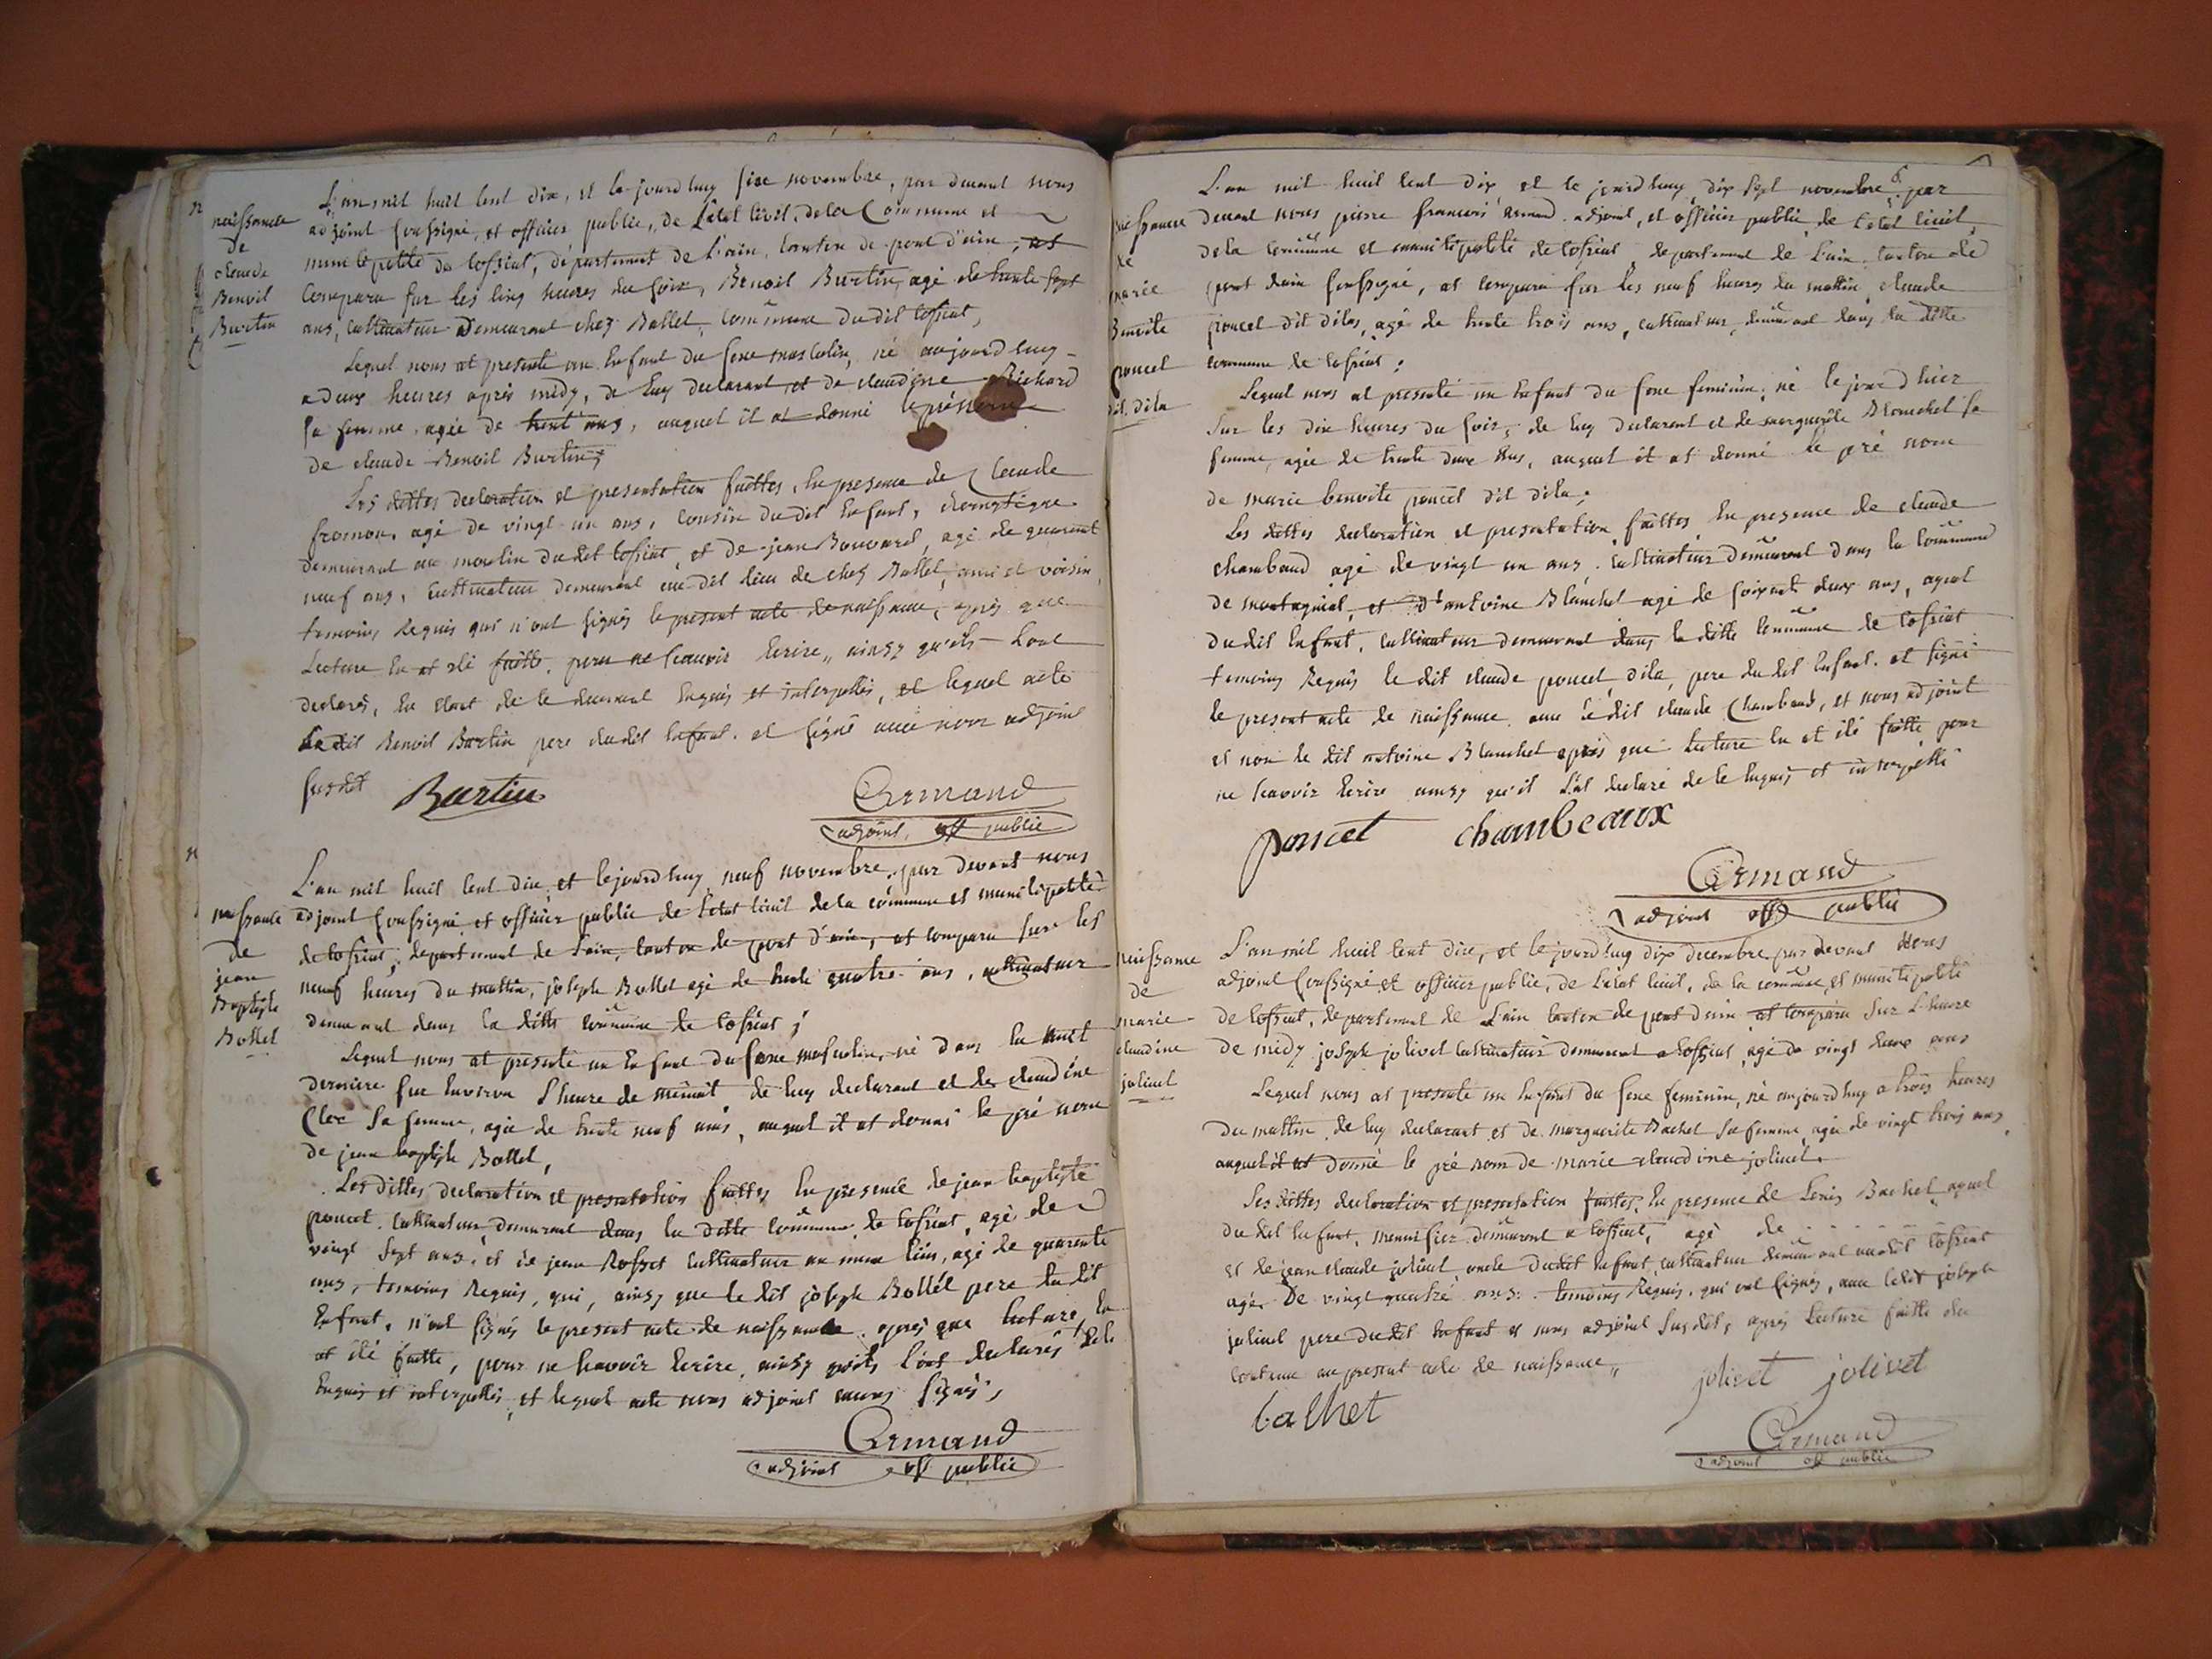 n
naissance
de
claude
Benoit
Burtin
L'an mil huit cent dix, et le jourd huy six novembre, par devant nous
adjoint soussigné, et officier public, de L'état civil, de la Commune et
municipalité de tossiat, département de L'ain, canton de pont d'ain, at
comparu sur les cinq heures du soir, Benoit Burtin, agé de trente sept
ans, cultivateur demeurant chez Bollet, commune du dit tossiat,
Lequel nous at presenté un enfant du sexe masculin, né aujourd huy
a deux heures après midy, de luy declarant et de claudine Richard
sa femme agée de trent ans, auquel il at donné le prénom
de claude Benoit Burtin;
Les dittes declaration et presentation faittes, en presence de Claude
fromon, agé de vingt un ans, cousin du dit enfant, domestique
demeurant au moulin du dit tossiat, et de jean Bouvard, agé de quarant
neuf ans, cultivateur demeurant au dit lieu de chez Bollet, ami et voisin,
temoins Requis qui n'ont signés le present acte de naissance, après que
Lecture en at été faitte, pour ne scavoir écrire, ainsy qu'ils L'ont
declarés, en etant de le enquis et interpellés, et lequel acte
Le dit Benoit Burtin pere du dit enfant at signé avec nous adjoint
susdit Burtin
Armand
adjoint off public
n
naissance
de
jean
Baptiste
Bollet
L'an mil huit cent dix, et le jourd huy neuf novembre par devant nous
adjoint soussigné et officier public de l'etat civil de la commune et municipalité
de tossiat, departement de L'ain, canton de pont d'ain, at comparu sur les
neuf heures du mattin, joseph Bollet agé de trente quatre ans, cultivateur
demeurant dans la ditte commune de tossiat;
Lequel nous at presenté un enfant du sexe masculin, né dans la nuit
derniere sur environ l'heure de minuit de luy declarant et de claudine
Cler sa femme, agée de trente neuf ans, auquel il at donné le pré nom
de jean baptiste Bollet,
Les dittes declaration et presentation faittes en presence de jean baptiste
poncet cultivateur demeurant dans la ditte commune de tossiat, agé de
vingt sept ans, et de jean Rosset cultivateur au meme lieu, agé de quarente
ans, temoins Requis, qui, ainsy que le dit joseph Bollet pere du dit
enfant, n'ont signés le present acte de naissance après que lecture en
at été faitte, pour ne scavoir écrire ainsy qu'ils l'ont declarés de le
enquis et interpellés, et lequel acte nous adjoint avons signés,
Armand
adjoint off public
6.
naissance
de
marie
Benoite
poncet
dit dila
L'an mil huit cent dix et le jourd huy dix sept novembre par
devant nous pierre francois armand adjoint, et officier public de l'etat civil
de la commune et municipalité de tossiat, departement de L'ain canton de
pont dain soussigné, at comparu sur les neuf heures du mattin claude
poncet dit dila, agé de trente trois ans, cultivateur, demeurant dans la ditte
commune de tossiat;
Lequel nous at presenté un enfant du sexe feminin, né le jour d hier
sur les dix heures du soir, de luy declarant et de marguerite Blanchet sa
femme, agée de trente deux ans, auquel il at donné le pré nom
de marie benoite poncet dit dila;
Les dittes declaration et presentation faittes, en presence de claude
chambaud agé de vingt un ans, cultivateur demeurant dans la commune
de montagniat, et d'antoine Blanchet agé de soixante deux ans, ayeul
du dit enfant, cultivateur demeurant dans la ditte commune de tossiat
temoins Requis le dit claude poncet dila, pere du dit enfant at signé
le present acte de naissance avec le dit claude Chambaud, et nous adjoint
et non le dit antoine Blanchet après que lecture en at été faitte pour
ne scavoir écrire ainsy qu'il L'at declaré de le enquis et interpellé
poncet chambeaux
Armand
adjoint off public
naissance
de
marie
claudine
jolivet
L'an mil huit cent dix, et le jourd huy dix decembre par devant Nous
adjoint soussigné et officier public, de L'etat civil, de la commune, et municipalité
de tossiat, departement de L'ain canton de pont d'ain at comparu sur L'heure
de midy joseph jolivet cultivateur demeurant a tossiat agé de vingt deux ans
Lequel nous at presenté un enfant du sexe feminin, né aujourd huy a trois heures
du mattin, de luy declarant et de marguerite Bachet sa femme agée de vingt trois ans,
auquel il at donné le pré nom de marie claudine jolivet.
Les dittes declaration et presentation faittes, en presence de Bachet ayeul
du dit enfant, menuisier demeurant a tossiat, agé de
et de jean claude jolivet oncle du dit enfant, cultivateur demeurant au dit tossiat
agé de vingt quatre ans. temoins Requis, qui ont signés, avec le dit joseph
jolivet pere du dit enfant et nous adjoint susdit, après lecture faitte du
contenu au present acte de naissance,,
jolivet jolivet
bachet
Armand
adjoint off public